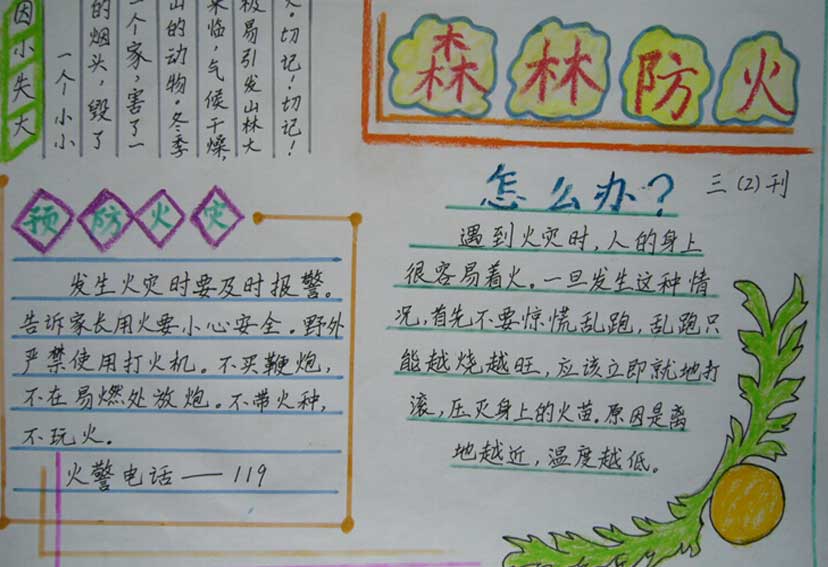 森林防火
三(2)刊
因小失大
一个小小
的烟头,毁了
一个家,害了一
山的动物。冬季
来临,气候干燥,
极易引发山林大
火。切记!切记!
预防火灾
发生火灾时要及时报警。
告诉家长用火要小心安全。野外
严禁使用打火机。不买鞭炮,
不在易燃处放炮。不带火种,
不玩火。
火警电话——119
怎么办?
遇到火灾时,人的身上
很容易着火。一旦发生这种情
况,首先不要惊慌乱跑,乱跑只
能越烧越旺,应该立即就地打
滚,压灭身上的火苗。原因是离
地越近,温度越低。